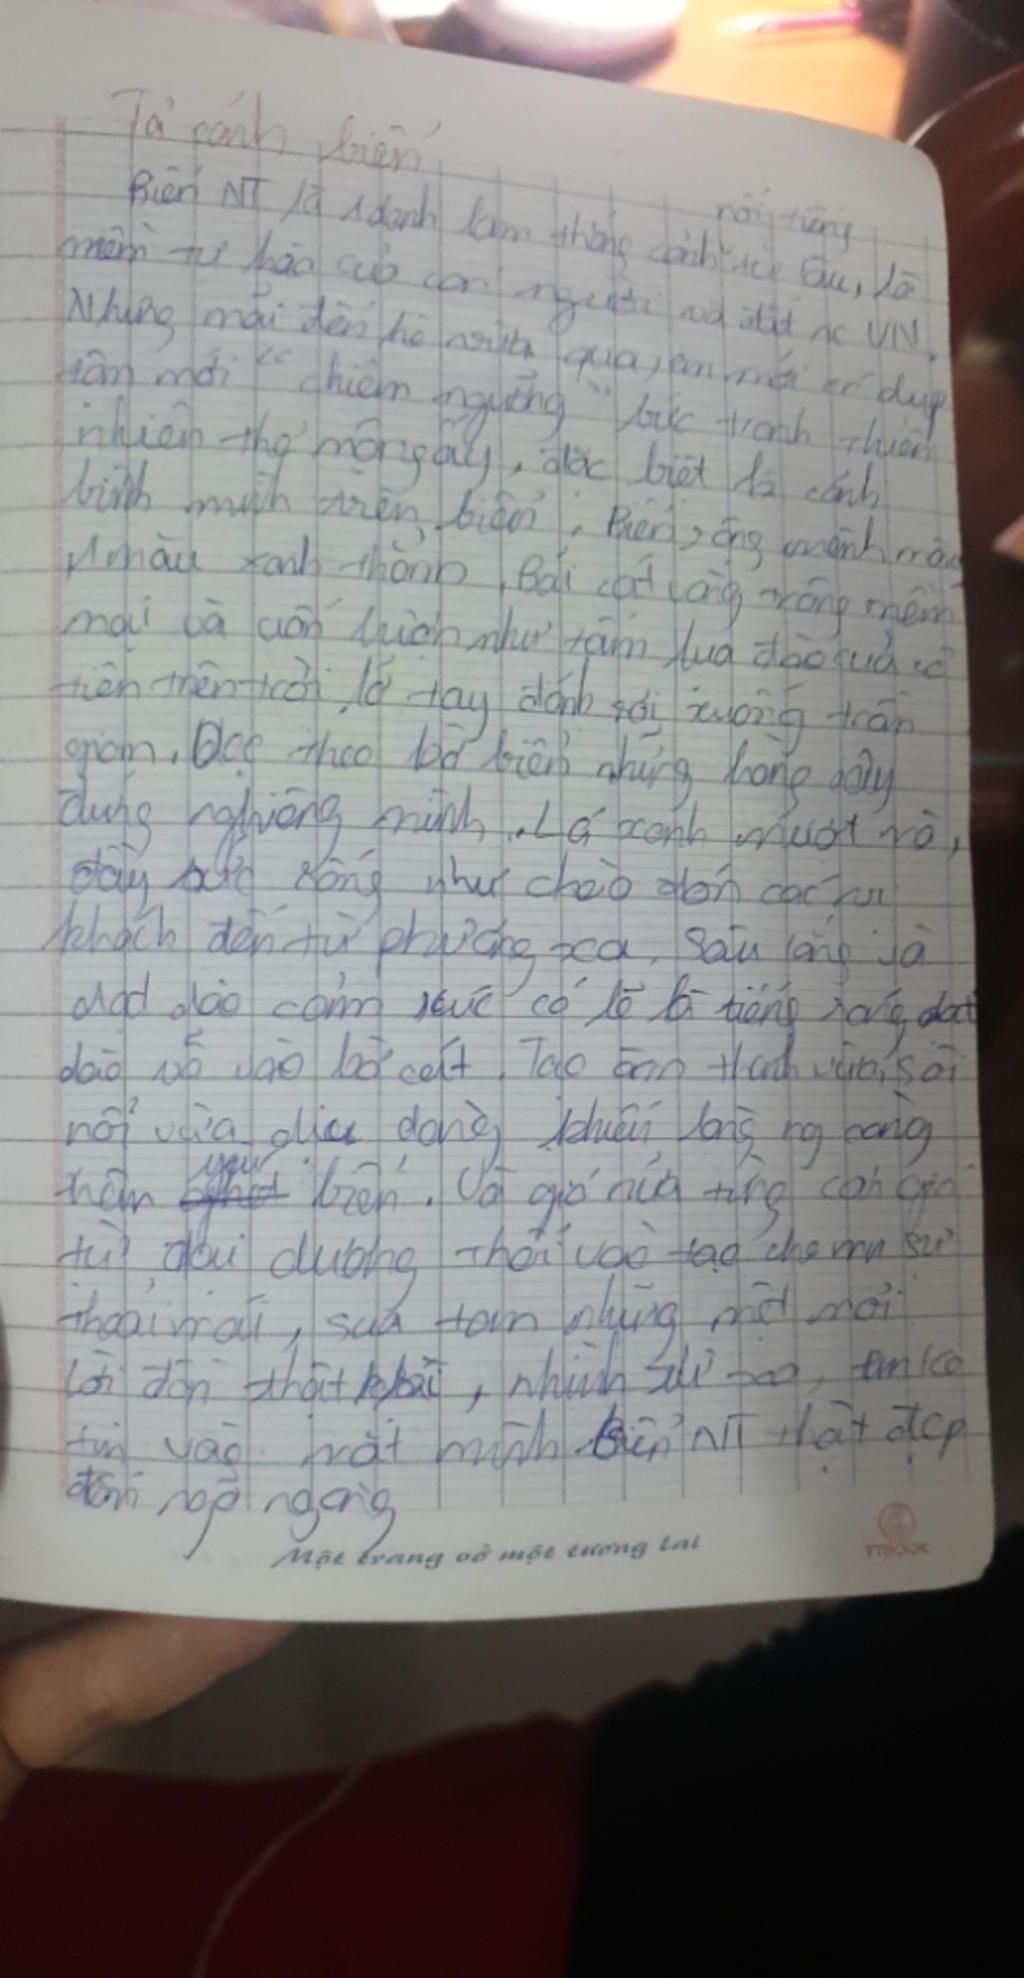 Tả cảnh biển
nổi tiếng
Biển NT là 1 danh lam thắng cảnh từ lâu, là
niềm tự hào của con người và đất nc VN.
Nhưng mãi đến hè vừa qua, em mới có dịp
tận mắt "chiêm ngưỡng" bức tranh thiên
nhiên thơ mộng ấy, đặc biệt là cảnh
bình minh trên biển. Biển rộng mênh mông
Màu xanh thẳm. Bãi cát vàng trông mềm
mại và uốn lượn như tấm lụa đào của cô
tiên trên trời lỡ tay đánh rơi xuống trần
gian. Dọc theo bờ biển những hàng cây
đứng nghiêng mình. Lá xanh mướt
đầy sức sống như chào đón các
khách đến từ phương xa. Sâu lắng và
dạt dào cảm xúc có lẽ là tiếng sóng dạt
dào vỗ vào bờ cát. Tạo âm thanh vừa sôi
nổi vừa dịu dàng khiến lòng ng càng
thêm yêu biển. Và gió nữa từng cơn gió
từ đại dương thổi vào tạo cho mn sự
thoải mái, xua tan những mệt mỏi
Lời đồn thật k sai,
tin vào mắt mình biển NT thật đẹp
đến ngỡ ngàng
Một trang vở một tương lai
TTBOOK